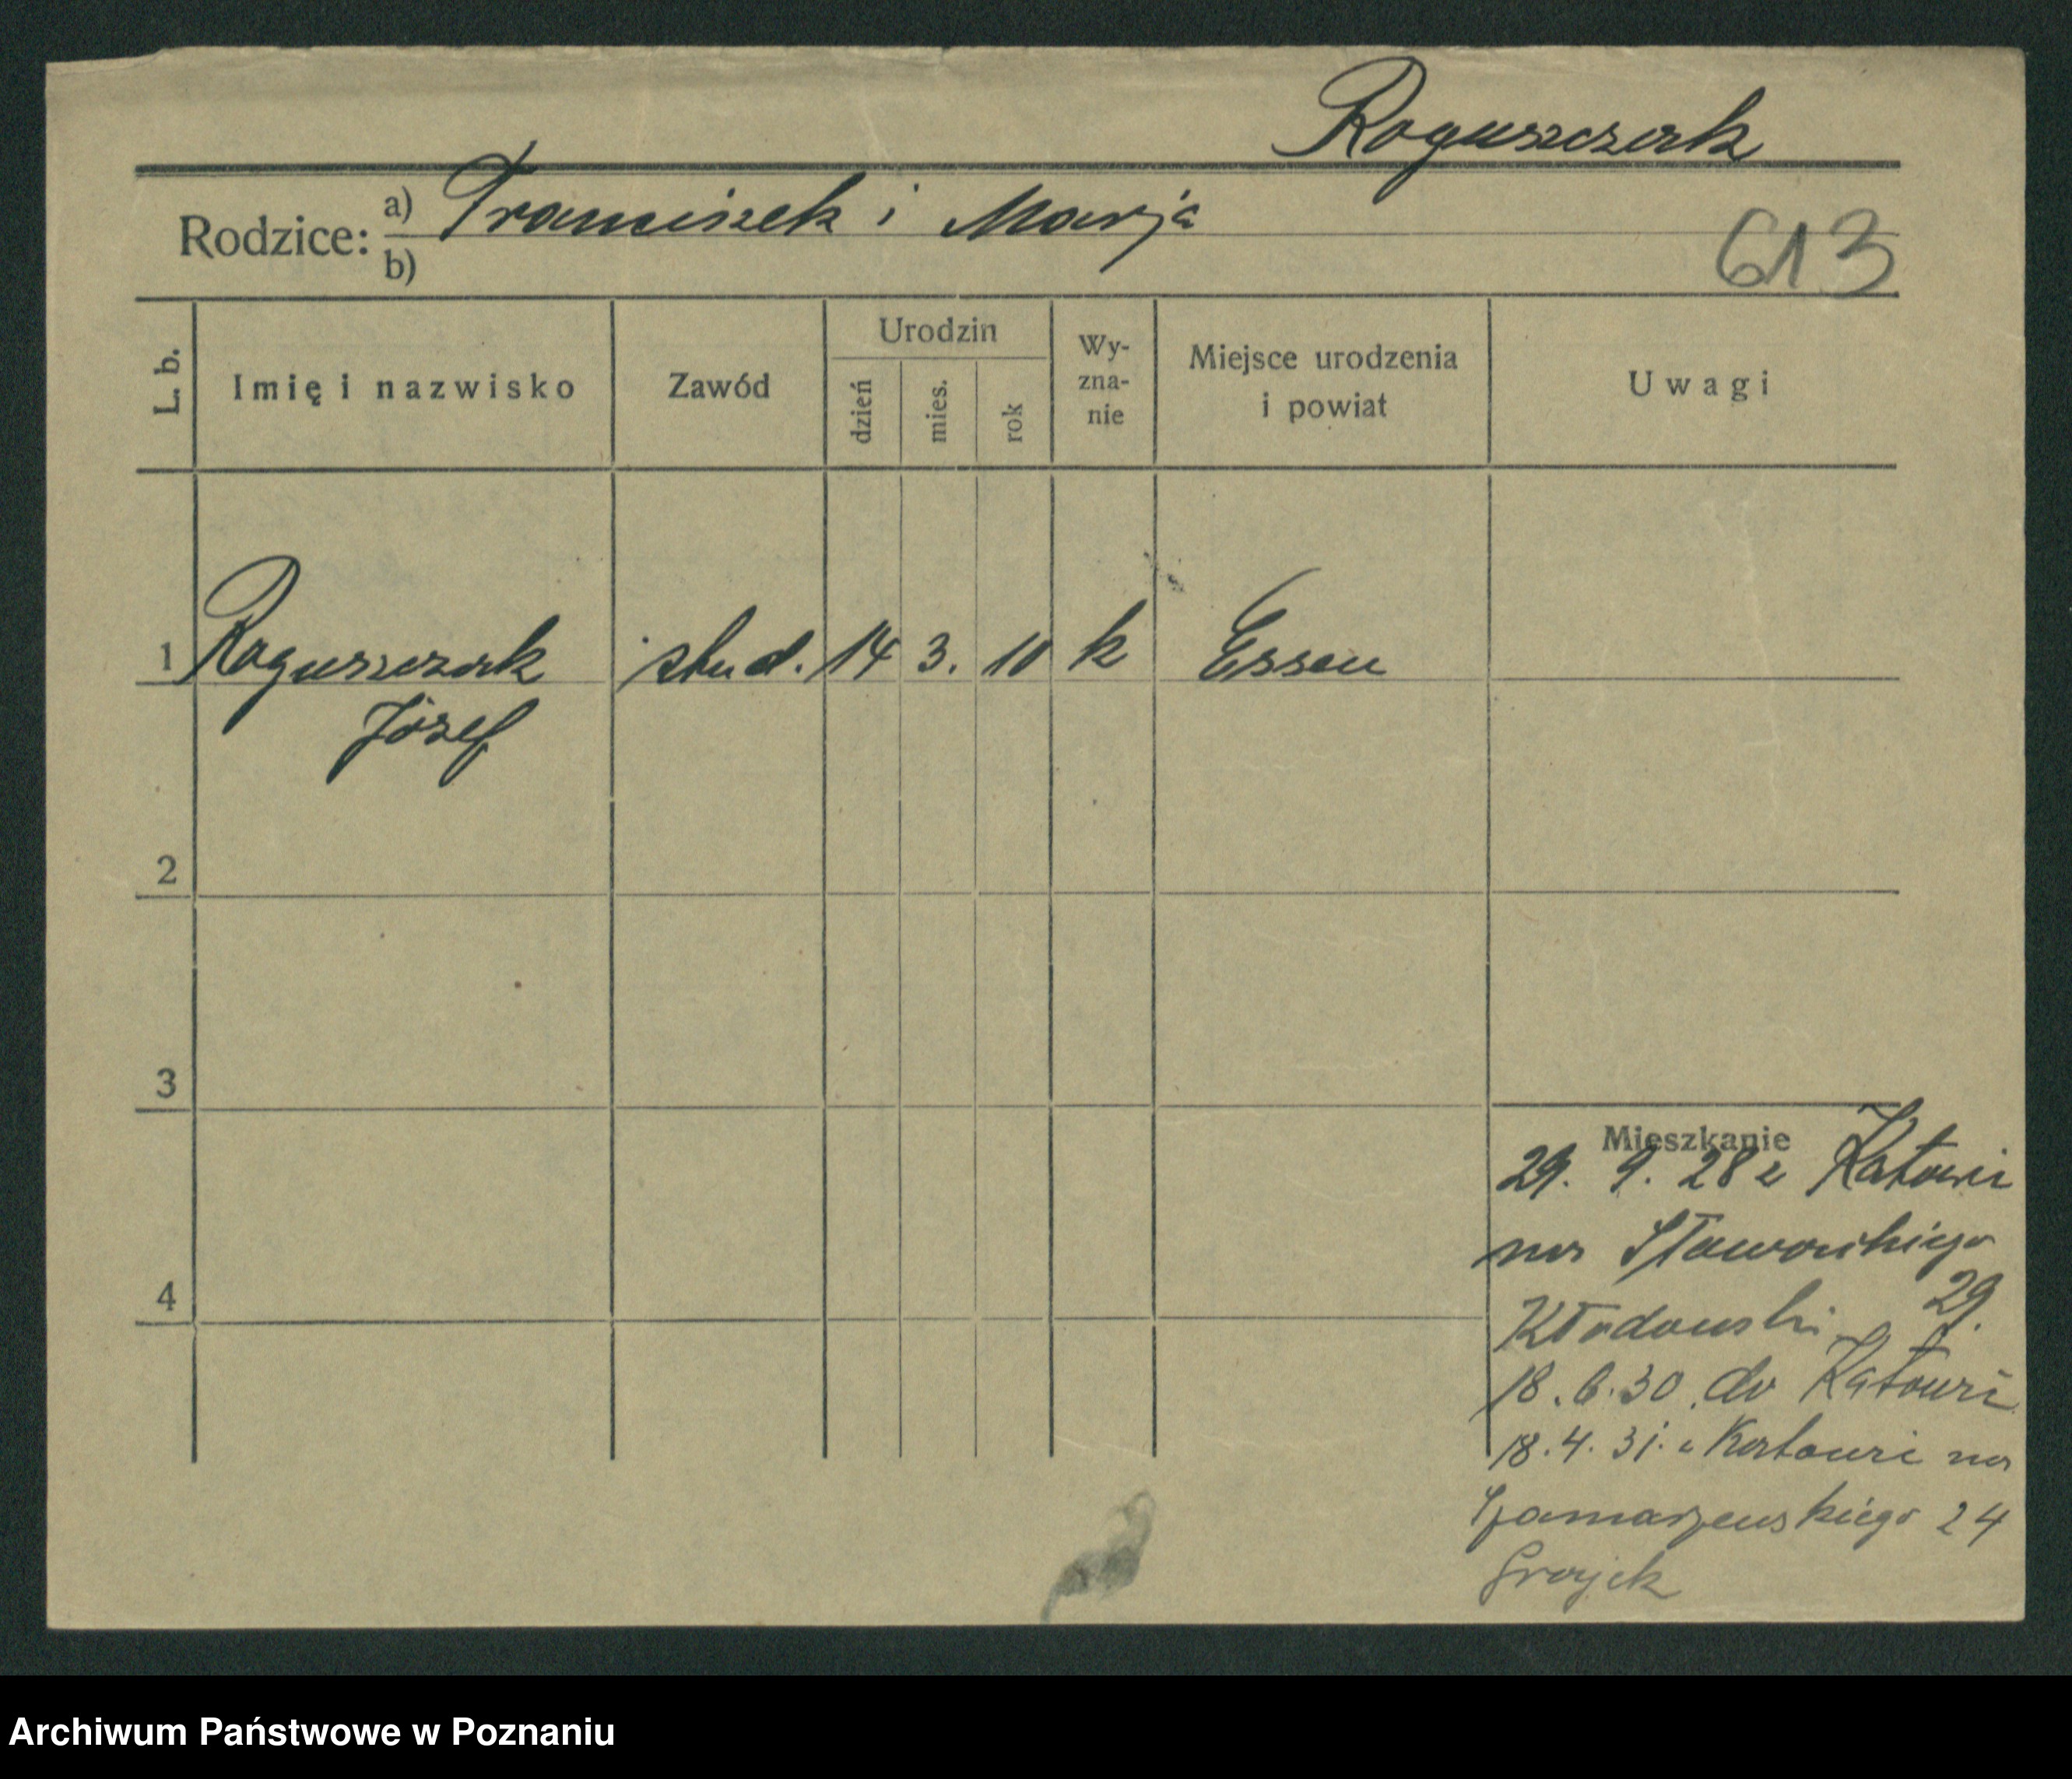 Roguszczak
Rodzice: a) Franciszek i Marja
b)
613
L. b.
Imię i nazwisko
Zawód
Urodzin
dzień
mies.
rok
Wy-
zna-
nie
Miejsce urodzenia
i powiat
Uwagi
1 Roguszczak stud. 14 3. 10 k Essen
Józef
2
3
4
Mieszkanie
29. 9. 28 z Katowic
na Słowackiego
29.
Kłodowski
18.6.30. do Katowic
18.4.31. z Katowic na
Szamarzewskiego 24
Archiwum Państwowe w Poznaniu